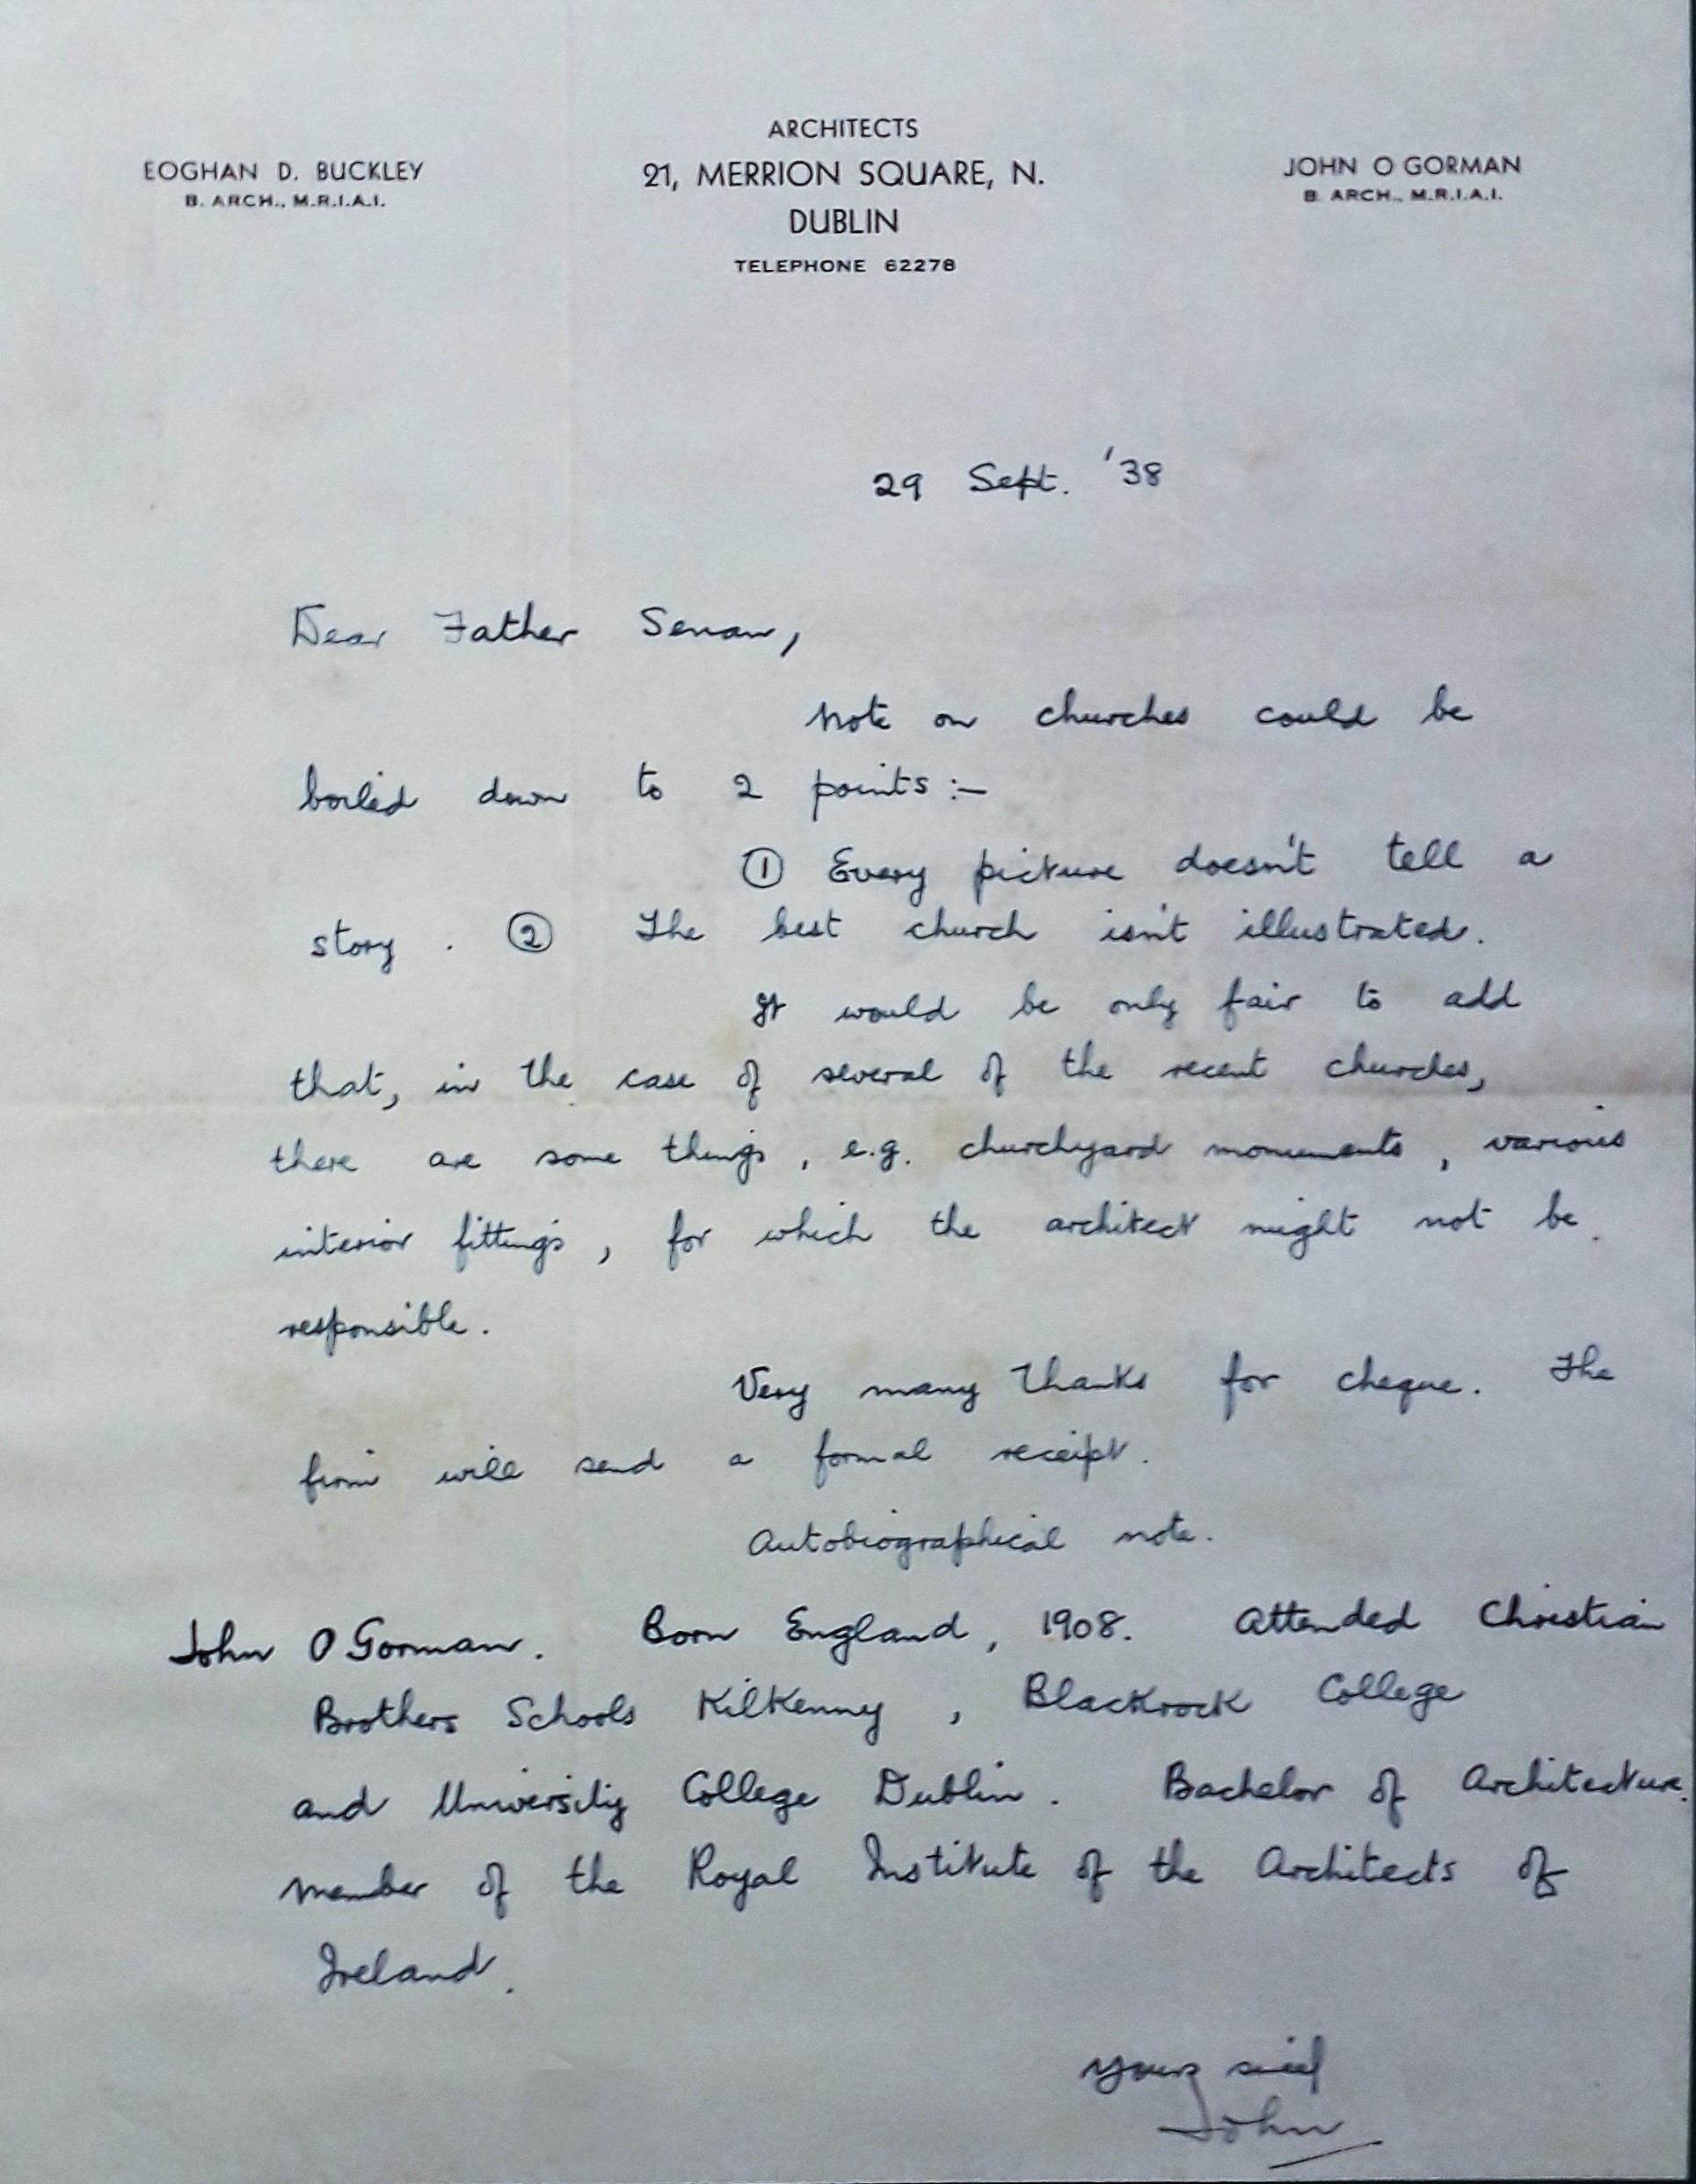 ARCHITECTS
EOGHAN D. BUCKLEY
B. ARCH., M.R.I.A.I.
21, MERRION SQUARE, N.
DUBLIN
TELEPHONE 62278
JOHN O GORMAN
B. ARCH., M.R.I.A.I.
29 Sept. '38
Dear Father Senan,
Note on churches could be
boiled down to 2 points:—
① Every picture doesn't tell a
story. ② The best church isn't illustrated.
It would be only fair to add
that, in the case of several of the recent churches,
there are some things, e.g. churchyard monuments, various
interior fittings, for which the architect might not be
responsible.
Very many thanks for cheque. The
firm will send a formal receipt.
Autobiographical note.
John O Gorman. Born England, 1908. Attended Christian
Brothers Schools Kilkenny, Blackrock College
and University College Dublin. Bachelor of Architecture.
Member of the Royal Institute of the Architects of
Ireland.
Yours
John